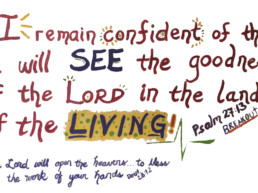 I remain confident of th
will SEE the goodne
f the LORD in the land
f the LIVING!
Psalm 27:13
BREAKOUT
Lord will open the heavens... to bless
the work of your hands